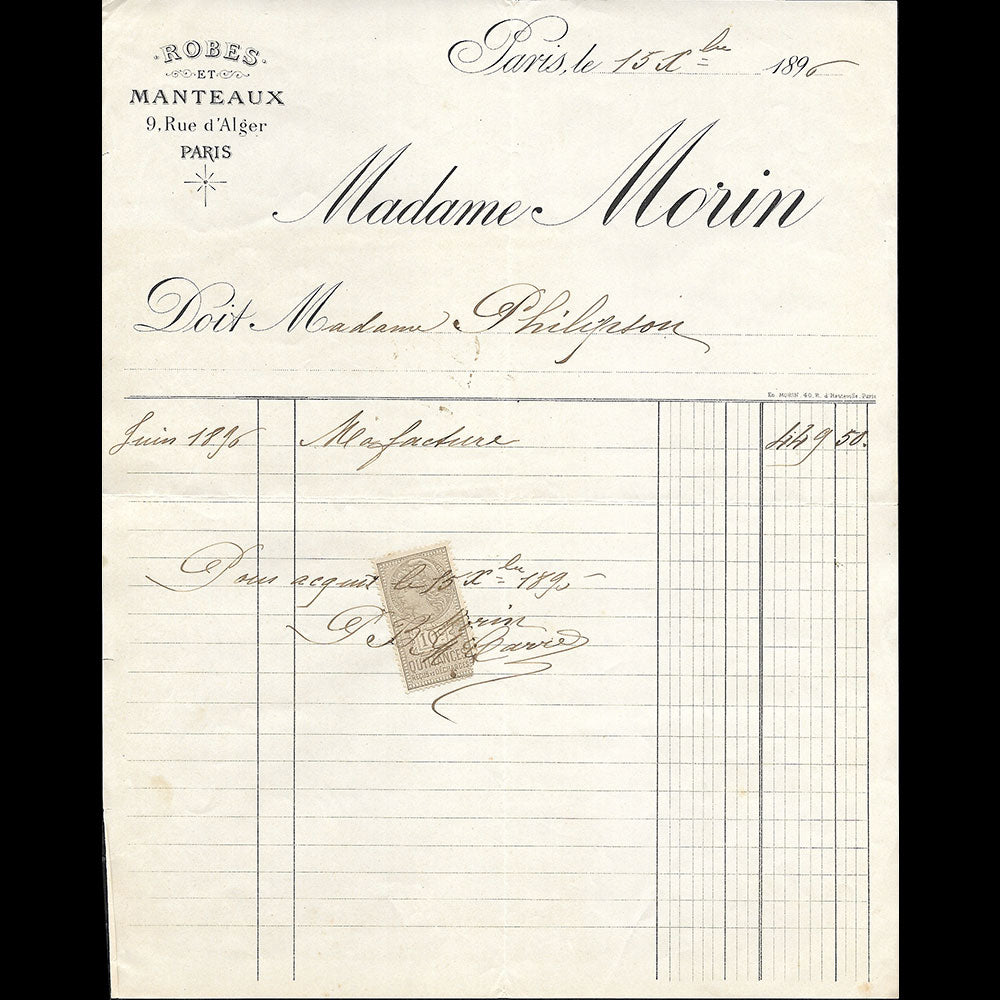 ROBES
ET
MANTEAUX
9, Rue d'Alger
PARIS
Paris, le 15 Xbre 1896
Madame Morin
Doit Madame Philipson
ED. MORIN 40, R. d'Hauteville, Paris
Juin 1896 Ma facture 449 50.
Pour acquit le 15 Xbre 1896
Morin
10c
QUITTANCES
REÇUS & DÉCHARGES